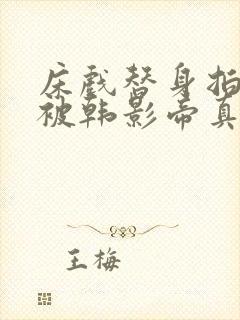 床戏替身拍
被韩影帝真
王梅